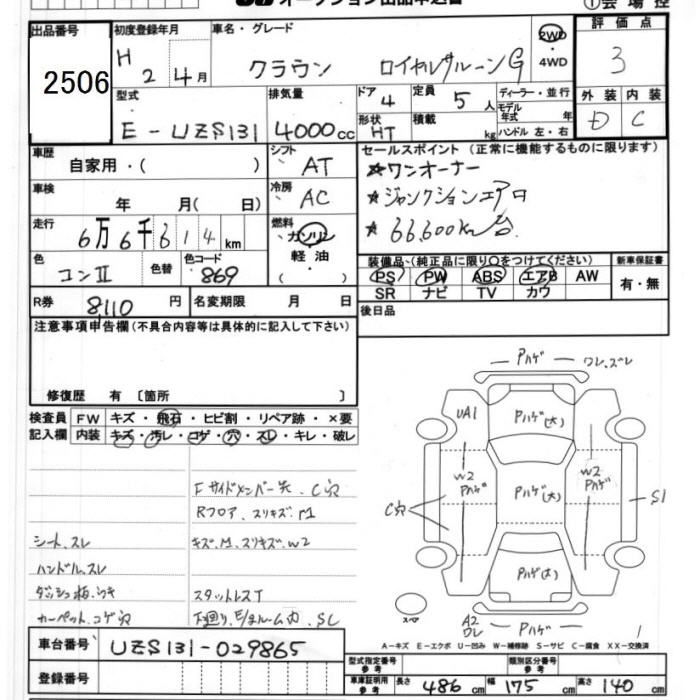 オークション出品申込書
①会場控
出品番号 2506
初度登録年月 H 2 4月
車名・グレード クラウン ロイヤルサルーンG
2WD・4WD
評価点 3
型式 E-UZS131
排気量 4000cc
ドア 4
形状 HT
定員 5人
積載 kg
ディーラー・並行
モデル年式 年
ハンドル 左・右
外装 D 内装 C
車歴 自家用・( )
シフト AT
セールスポイント(正常に機能するものに限ります)
☆ワンオーナー
☆ジャンクションエアロ
☆66,600km台
車検 年 月( 日)
冷房 AC
走行 6万6千614km
燃料 ガソリン 軽油・( )
色 コンⅡ 色替 色コード 869
装備品(純正品に限り○をつけてください) 新車保証書
PS PW ABS エアB AW 有・無
SR ナビ TV カワ
R券 8,110円 名変期限 月 日
後日品
注意事項申告欄(不具合内容等は具体的に記入して下さい)
修復歴 有 〔箇所 〕
検査員記入欄 FW キズ・飛石・ヒビ割・リペア跡・×要
内装 キズ・汚レ・コゲ・穴・スレ・キレ・破レ
Fサイドメンバー先、C穴
Rフロア、スリキズ.M
シート、スレ キズ.M、スリキズ.W2
ハンドル、スレ
ダッシュ板、ウキ スタットレスT
カーペット、コゲ穴 下廻り、E/gルーム内 SC
Pハゲ ワレ、ズレ
UA1 Pハゲ(大)
W2 Pハゲ Pハゲ(大) W2 Pハゲ
C穴 S1
Pハゲ(大)
スペア A2 ワレ Pハゲ
A-キズ E-エクボ U-凹み W-補修跡 S-サビ C-腐食 XX-交換済
車台番号 UZS131-029865
登録番号
型式指定番号 参考 類別区分番号 参考
車庫証明用 参考 長さ 486cm 幅 175cm 高さ 140cm